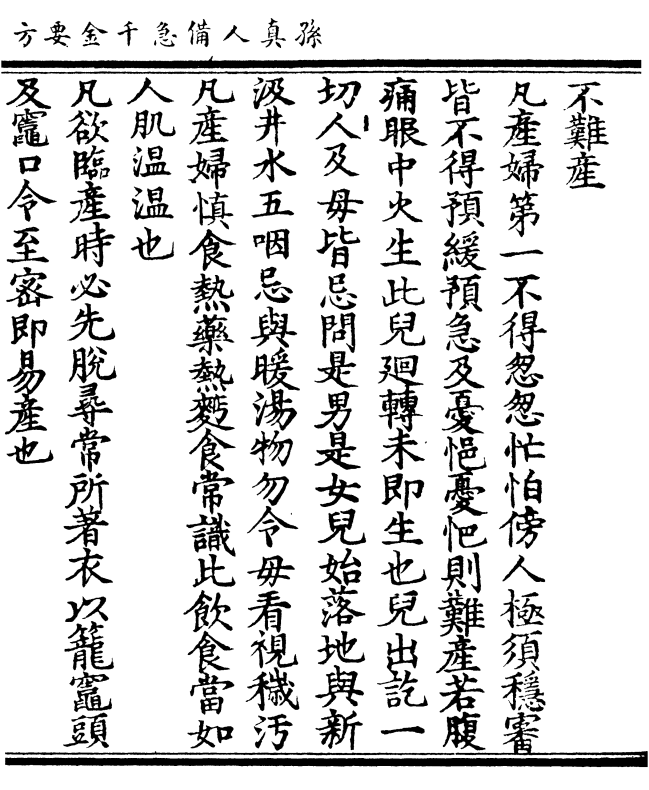 孫真人備急千金要方
不難產
凡產婦第一不得怱怱忙怕傍人極須穩審
皆不得預緩預急及憂悒憂悒則難產若腹
痛眼中火生此兒廻轉未即生也兒出訖一
切人及母皆忌問是男是女兒始落地與新
汲井水五咽忌與暖湯物勿令母看視穢汚
凡產婦慎食熱藥熱麪食常識此飲食當如
人肌温温也
凡欲臨產時必先脫尋常所著衣以籠竈頭
及竈口令至密即易產也